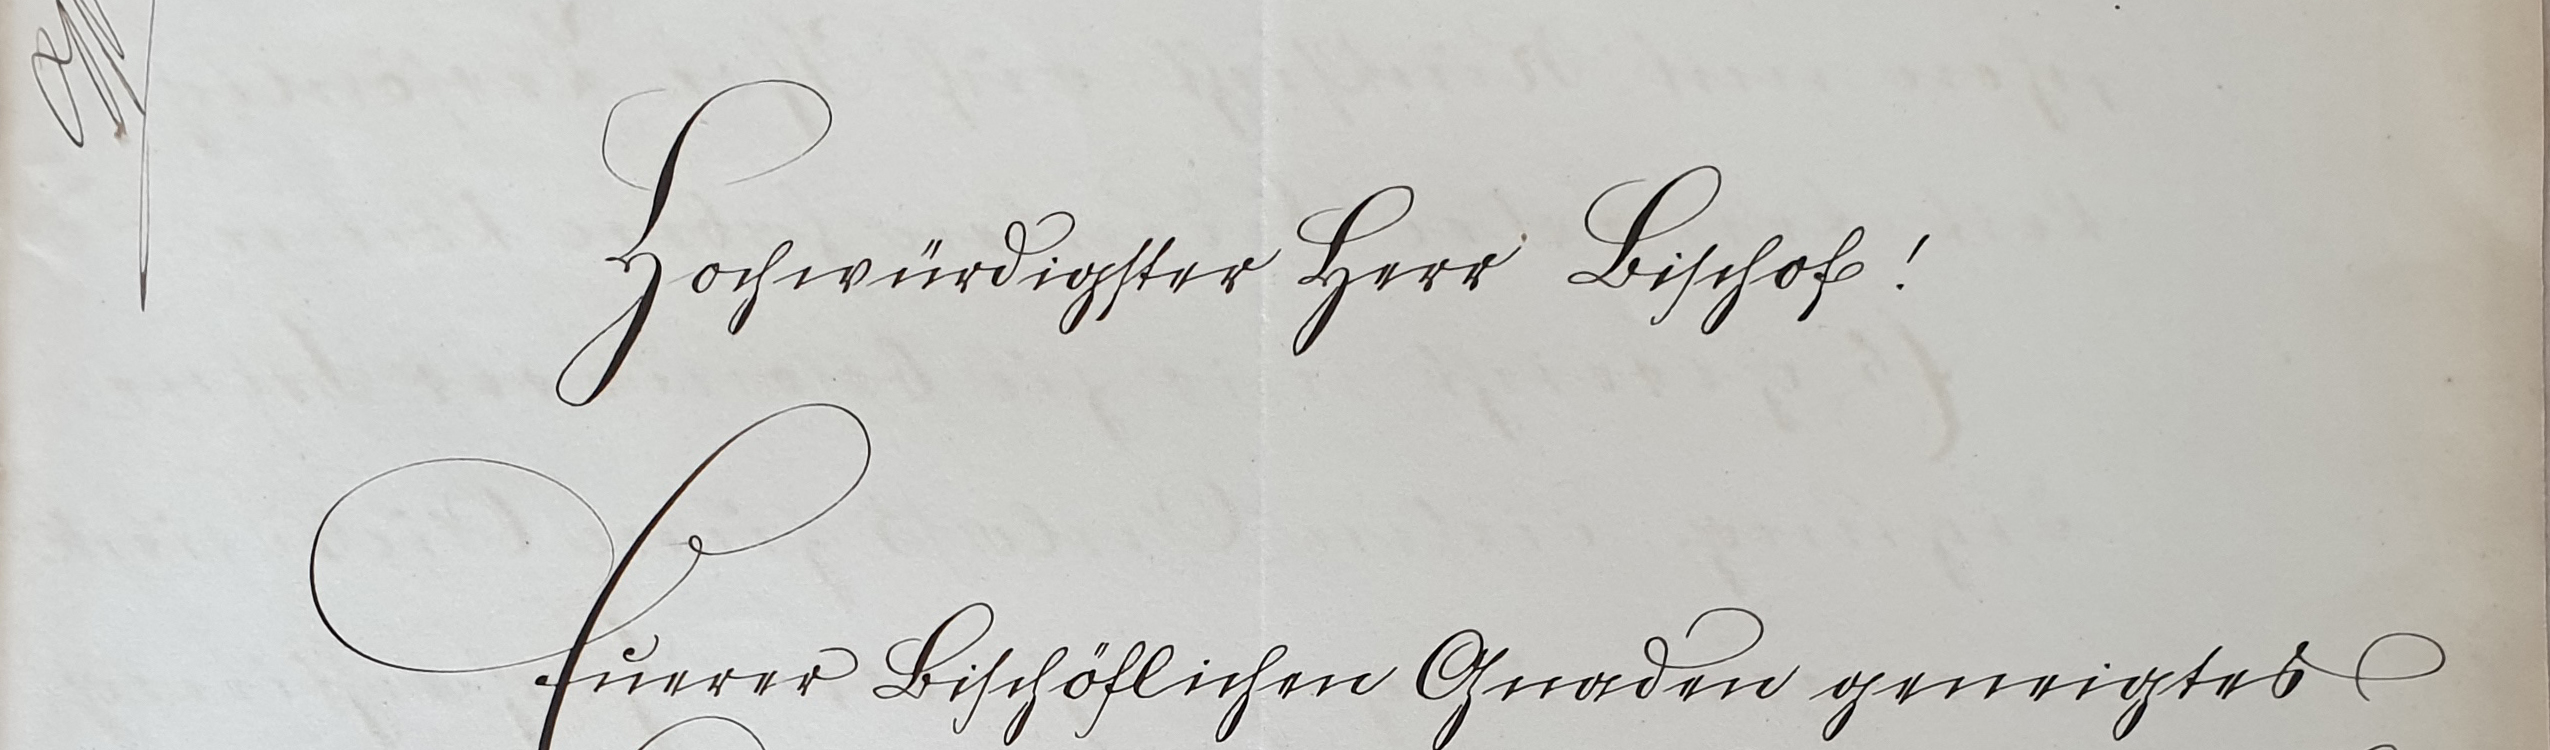 Hochwürdigster Herr Bischof!
Euerer Bischöflichen Gnaden geneigtes